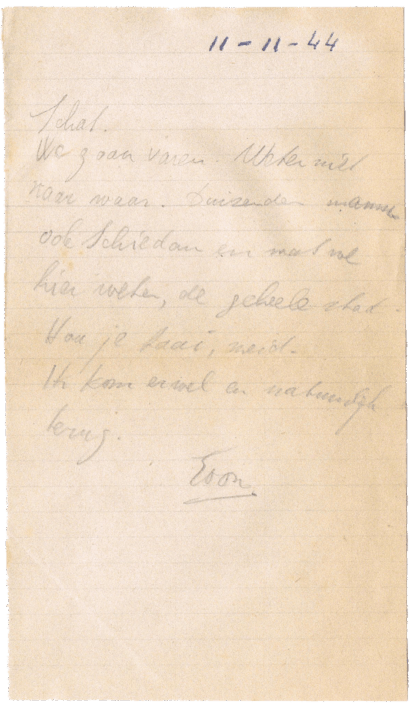 11-11-44
Schat.
We gaan varen. Weten niet
naar waar. Duizenden mannen
ook Schiedam en wat we
hier weten, de geheele stad.
Hou je taai, meid.
Ik kom er wel en natuurlijk
terug.